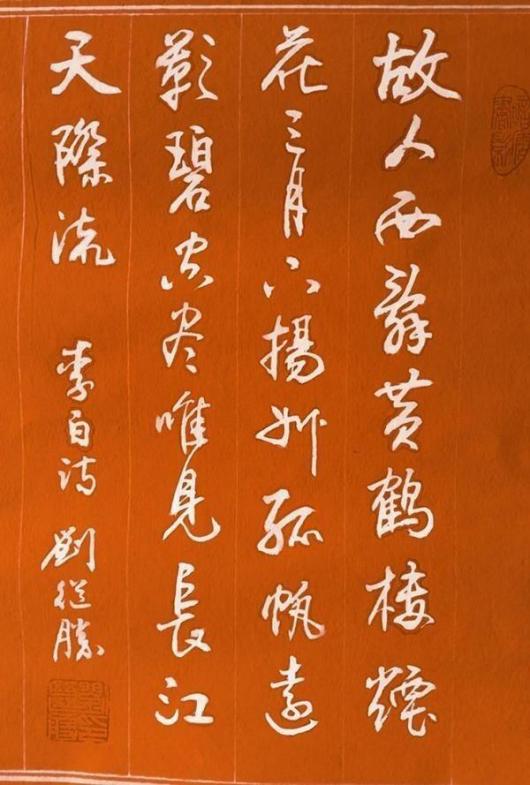 故人西辞黄鹤楼煙
花三月下揚州孤帆遠
影碧空尽唯見長江
天際流
李白诗 劉從勝